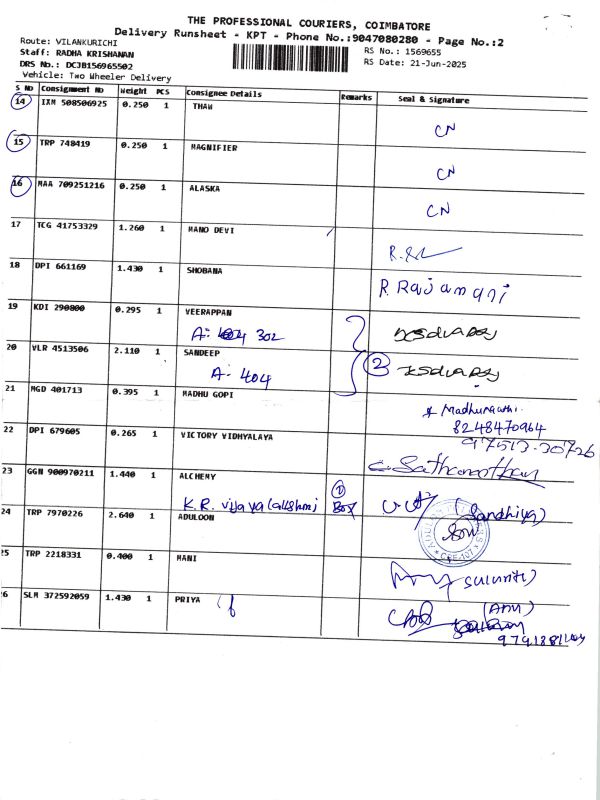 THE PROFESSIONAL COURIERS, COIMBATORE
Delivery Runsheet - KPT - Phone No.:9047080280 - Page No.:2
Route: VILANKURICHI
Staff: RADHA KRISHANAN
DRS No.: DCJB156965502
Vehicle: Two Wheeler Delivery
RS No.: 1569655
RS Date: 21-Jun-2025
S NO Consignment No Weight PCS Consignee Details Remarks Seal & Signature
14 IXM 508506925 0.250 1 THAW
CN
15 TRP 748419 0.250 1 MAGNIFIER
CN
16 MAA 709251216 0.250 1 ALASKA
CN
17 TCG 41753329 1.260 1 MANO DEVI
18 DPI 661169 1.430 1 SHOBANA
R. Rajamani
19 KDI 290800 0.295 1 VEERAPPAN
A- 302
20 VLR 4513506 2.110 1 SANDEEP
A- 404 2
21 MGD 401713 0.395 1 MADHU GOPI
8248470964
22 DPI 679605 0.265 1 VICTORY VIDHYALAYA
97513-30726
23 GGN 900970211 1.440 1 ALCHEMY
K.R. vijayalakshmi 1 Box (Sandhiya)
24 TRP 7970226 2.640 1 ADULOON
25 TRP 2218331 0.400 1 MANI
26 SLM 372592059 1.430 1 PRIYA